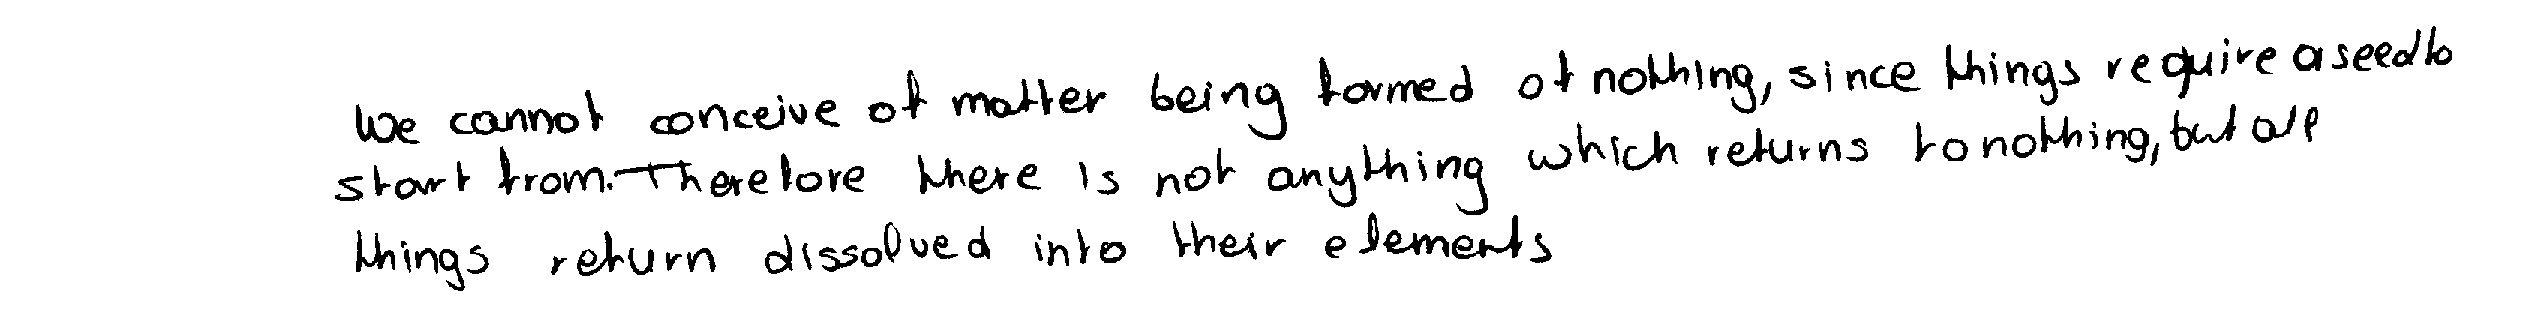 We cannot conceive of matter being formed of nothing, since things require a seed to
start from. Therefore there is not anything which returns to nothing, but all
things return dissolved into their elements